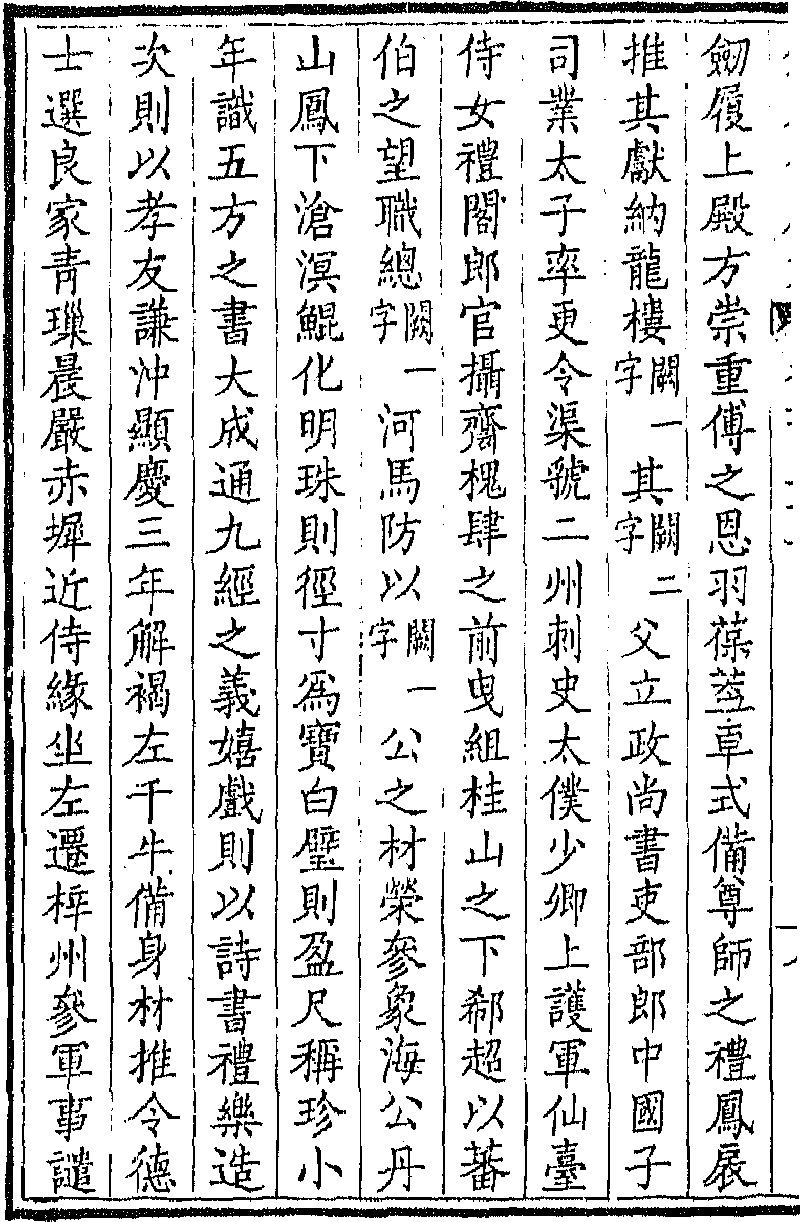 劒履上殿方崇重傅之恩羽葆蓋車式備尊師之禮鳳扆
推其獻納龍樓闕一字其闕二字父立政尚書吏部郎中國子
司業太子率更令渠虢二州刺史太僕少卿上護軍仙臺
侍女禮閣郎官攝齋槐肆之前曳組桂山之下郗超以蕃
伯之望職總闕一字河馬防以闕一字公之材榮參象海公丹
山鳳下滄溟鯤化明珠則徑寸爲寶白璧則盈尺稱珍小
年識五方之書大成通九經之義嬉戲則以詩書禮樂造
次則以孝友謙沖顯慶三年解褐左千牛備身材推令德
士選良家靑璅晨嚴赤墀近侍緣坐左遷梓州參軍事譴